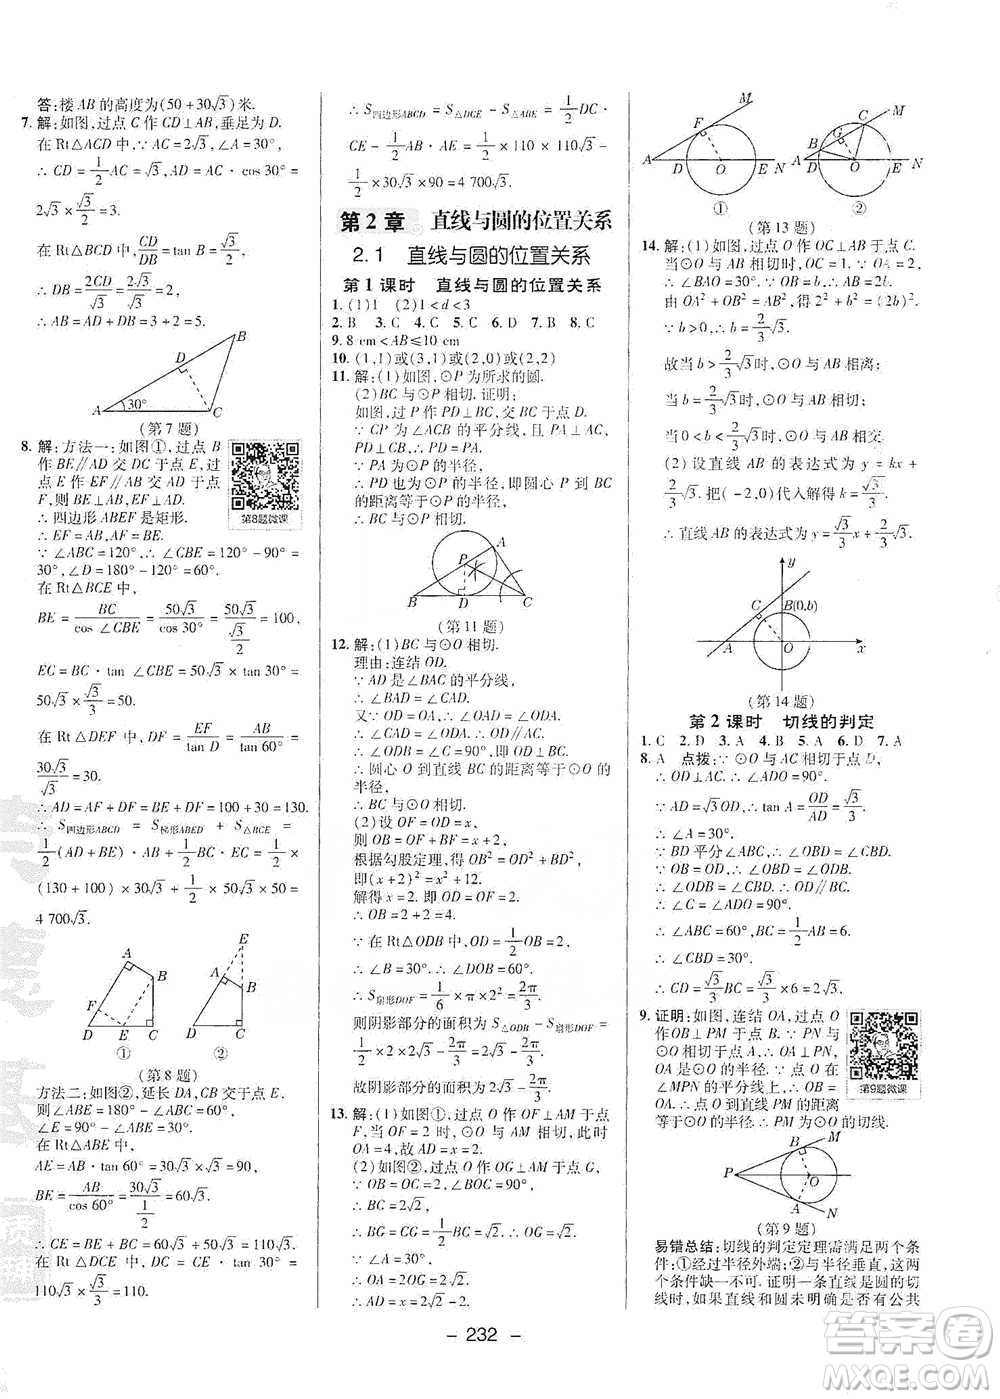 答:楼 AB 的高度为(50+30√3)米.
7. 解:如图,过点 C 作 CD⊥AB,垂足为 D.
在 Rt△ACD 中,∵ AC=2√3,∠A=30°,
∴ CD=1/2 AC=√3,AD=AC·cos 30°=
2√3×√3/2=3.
在 Rt△BCD 中,CD/DB=tan B,
∴ DB=2CD/√3=2√3/√3=2.
∴ AB=AD+DB=3+2=5.
A 30° C D B
(第 7 题)
8. 解:方法一:如图①,过点 B
作 BE∥AD 交 DC 于点 E,过点
E 作 EF∥AB 交 AD 于点
F,则 BE⊥AB,EF⊥AD.
∴ 四边形 ABEF 是矩形.
第8题微课
∴ EF=AB,AF=BE.
∵ ∠ABC=120°,∴ ∠CBE=120°-90°=
30°,∠D=180°-120°=60°.
在 Rt△BCE 中,
BE=BC/cos∠CBE=50√3/cos 30°=50√3/(√3/2)=100,
EC=BC·tan∠CBE=50√3×tan 30°=
50√3×√3/3=50.
在 Rt△DEF 中,DF=EF/tan D=AB/tan 60°=
30√3/√3=30.
∴ AD=AF+DF=BE+DF=100+30=130.
∴ S四边形ABCD=S梯形ABED+S△BCE=
1/2(AD+BE)·AB+1/2BC·EC=1/2×
(130+100)×30√3+1/2×50√3×50=
4 700√3.
① ②
(第 8 题)
方法二:如图②,延长 DA,CB 交于点 E.
则∠ABE=180°-∠ABC=60°,
∠E=90°-∠ABE=30°.
在 Rt△ABE 中,
AE=AB·tan 60°=30√3×√3=90,
BE=AB/cos60°=30√3/(1/2)=60√3.
∴ CE=BE+BC=60√3+50√3=110√3.
在 Rt△DCE 中,DC=CE·tan 30°=
110√3×√3/3=110.
∴ S四边形ABCD=S△DCE-S△ABE=1/2DC·
CE-1/2AB·AE=1/2×110×110√3-
1/2×30√3×90=4 700√3.
第 2 章 直线与圆的位置关系
2.1 直线与圆的位置关系
第 1 课时 直线与圆的位置关系
1. (1)1 (2)1<d<3
2. B 3. C 4. C 5. C 6. D 7. B 8. C
9. 8 cm<AB≤10 cm
10. (1,1)或(3,1)或(2,0)或(2,2)
11. 解:(1)如图,⊙P 为所求的圆.
(2)BC 与⊙P 相切.证明:
如图,过 P 作 PD⊥BC,交 BC 于点 D.
∵ CP 为∠ACB 的平分线,
且 PA⊥AC,PD⊥CB,∴ PD=PA.
∵ PA 为⊙P 的半径,
∴ PD 也为⊙P 的半径,即圆心 P 到 BC
的距离等于⊙P 的半径.
∴ BC 与⊙P 相切.
A P B D C
(第 11 题)
12. 解:(1)BC 与⊙O 相切.
理由:连结 OD.
∵ AD 是∠BAC 的平分线,
∴ ∠BAD=∠CAD.
又∵ OD=OA,∴ ∠OAD=∠ODA.
∴ ∠CAD=∠ODA.∴ OD∥AC.
∴ ∠ODB=∠C=90°,即 OD⊥BC.
∴ 圆心 O 到直线 BC 的距离等于⊙O 的
半径.
∴ BC 与⊙O 相切.
(2)设 OF=OD=x,
则 OB=OF+BF=x+2,
根据勾股定理,得 OB²=OD²+BD²,
即(x+2)²=x²+12.
解得 x=2.即 OD=OF=2,
∴ OB=2+2=4.
∵ 在 Rt△ODB 中,OD=1/2OB=2,
∴ ∠B=30°.∴ ∠DOB=60°.
∴ S扇形DOF=1/6×π×2²=2π/3.
则阴影部分的面积为 S△ODB-S扇形DOF=
1/2×2×2√3-2π/3=2√3-2π/3.
故阴影部分的面积为 2√3-2π/3.
13. 解:(1)如图①,过点 O 作 OF⊥AM 于点
F.当 OF=2 时,⊙O 与 AM 相切,此时
OA=4,故 x=AD=2.
(2)如图②,过点 O 作 OG⊥AM 于点 G.
∵ OB=OC=2,∠BOC=90°,
∴ BC=2√2.
∵ OG⊥BC,
∴ BG=CG=√2.∴ OG=1/2BC=√2.
∵ ∠A=30°,
∴ OA=2√2.
∴ AD=x=2√2-2.
① ②
(第 13 题)
14. 解:(1)如图,过点 O 作 OC⊥AB 于点 C.
当⊙O 与 AB 相切时,BO=OC=b.
∵ ∠CAO=30°,OC=b,∴ OA=2b.
由 OA²+OB²=AB²,得 2²+b²=(2b)².
∵ b>0,∴ b=2/3√3.
故当 b>2/3√3时,⊙O 与 AB 相离;
当 b=2/3√3时,⊙O 与 AB 相切;
当 0<b<2/3√3时,⊙O 与 AB 相交.
(2)设直线 AB 的表达式为 y=kx+
2/3√3,把(-2,0)代入解得 k=√3/3.
∴ 直线 AB 的表达式为 y=√3/3x+2/3√3.
y C B(0,b) A O x
(第 14 题)
第 2 课时 切线的判定
1. C 2. D 3. A 4. B 5. A 6. D 7. A
8. A 点拨:∵ ⊙O 与 AC 相切于点 D,
∴ OD⊥AC.∴ ∠ADO=90°.
∵ AD=√3OD,∴ tan A=OD/AD=√3/3.
∴ ∠A=30°.
∵ BD 平分∠ABC,∴ ∠OBD=∠CBD.
∵ OB=OD,∴ ∠OBD=∠ODB.
∴ ∠ODB=∠CBD.∴ OD∥BC.
∴ ∠C=∠ADO=90°.
∴ ∠ABC=60°,BC=1/2AB=6.
∴ ∠CBD=30°.
∴ CD=√3/3BC=√3/3×6=2√3.
9. 证明:如图,连结 OA,过点 O
作OB⊥PM 于点 B.∵ PN 与
⊙O 相切于点 A,∴ OA⊥PN.
又∵ OB⊥PM,点 O 在
∠MPN 的平分线上,∴ OB=
OA.∴ O 到直线 PM 的距离
第9题微课
等于⊙O 的半径.∴ PM 为⊙O 的切线.
P B M O A N
(第 9 题)
易错总结:切线的判定定理需满足两个条
件:①经过半径外端;②与半径垂直,这两
个条件缺一不可.证明一条直线是圆的切
线时,如果直线和圆未明确是否有公共
- 232 -
答案圈
MXQE.COM